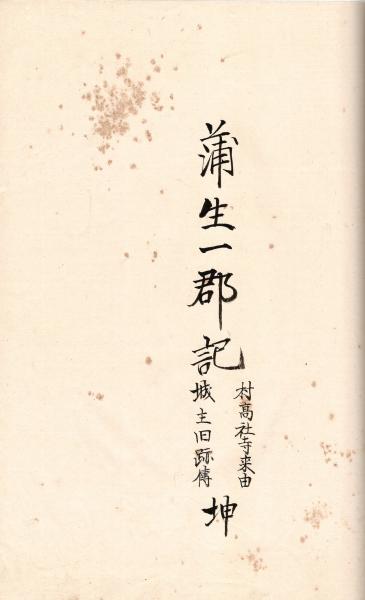 蒲生一郡記
村高社寺来由
城主旧跡傳
坤